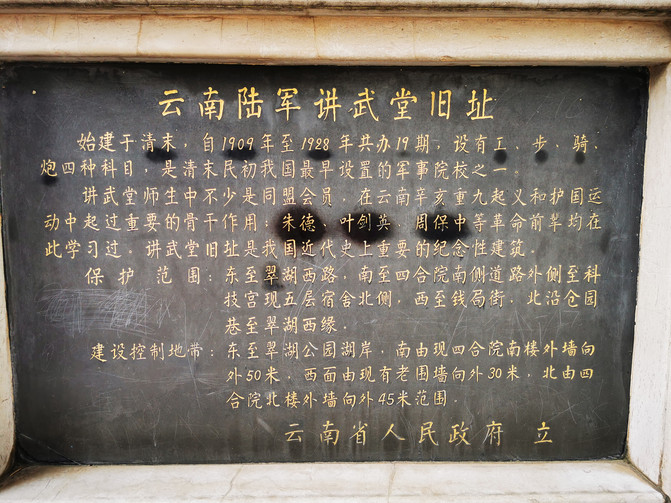 云南陆军讲武堂旧址
始建于清末，自1909年至1928年共办19期，设有工、步、骑、
炮四种科目，是清末民初我国最早设置的军事院校之一。
讲武堂师生中不少是同盟会员，在云南辛亥重九起义和护国运
动中起过重要的骨干作用，朱德、叶剑英、周保中等革命前辈均在
此学习过，讲武堂旧址是我国近代史上重要的纪念性建筑。
保护范围：东至翠湖西路，南至四合院南侧道路外侧至科
技宫现五层宿舍北侧，西至钱局街，北沿仓园
巷至翠湖西缘．
建设控制地带：东至翠湖公园湖岸，南由现四合院南楼外墙向
外50米，西面由现有老围墙向外30米，北由四
合院北楼外墙向外45米范围．
云南省人民政府 立